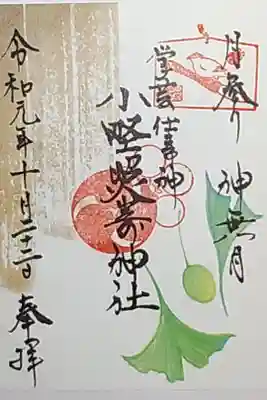 月参り 神無月
学芸 仕事神
小野照崎神社
令和元年十月二十二日 奉拝